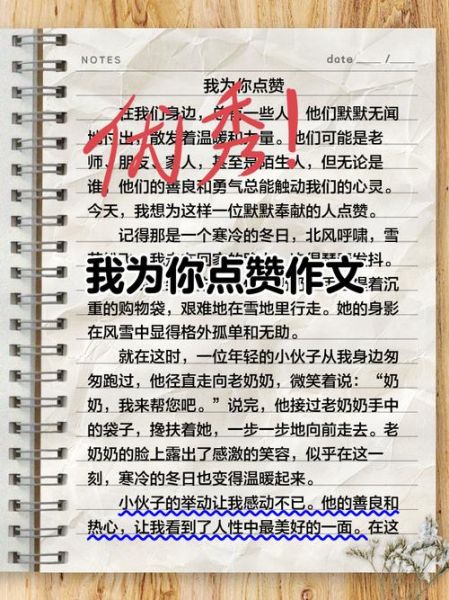 NOTES
date ____ /____
我为你点赞
优秀！
在我们身边，有一些人，他们默默无闻
地付出，散发着温暖和力量。他们可能是老
师、朋友、家人，甚至是陌生人，但无论是
谁，他们的善良和勇气总能触动我们的心灵。
今天，我想为这样一位默默奉献的人点赞。
记得那是一个寒冷的冬日，北风呼啸，雪
发抖。
我为你点赞作文
提着沉
重的购物袋，艰难地在雪地里行走。她的身影
在风雪中显得格外孤单和无助。
就在这时，一位年轻的小伙子从我身边匆
匆跑过，他径直走向老奶奶，微笑着说：“奶
奶，我来帮您吧。”说完，他接过老奶奶手中
的袋子，搀扶着她，一步一步地向前走去。老
奶奶的脸上露出了感激的笑容，似乎在这一
刻，寒冷的冬日也变得温暖起来。
小伙子的举动让我感动不已。他的善良和
热心，让我看到了人性中最美好的一面。在这